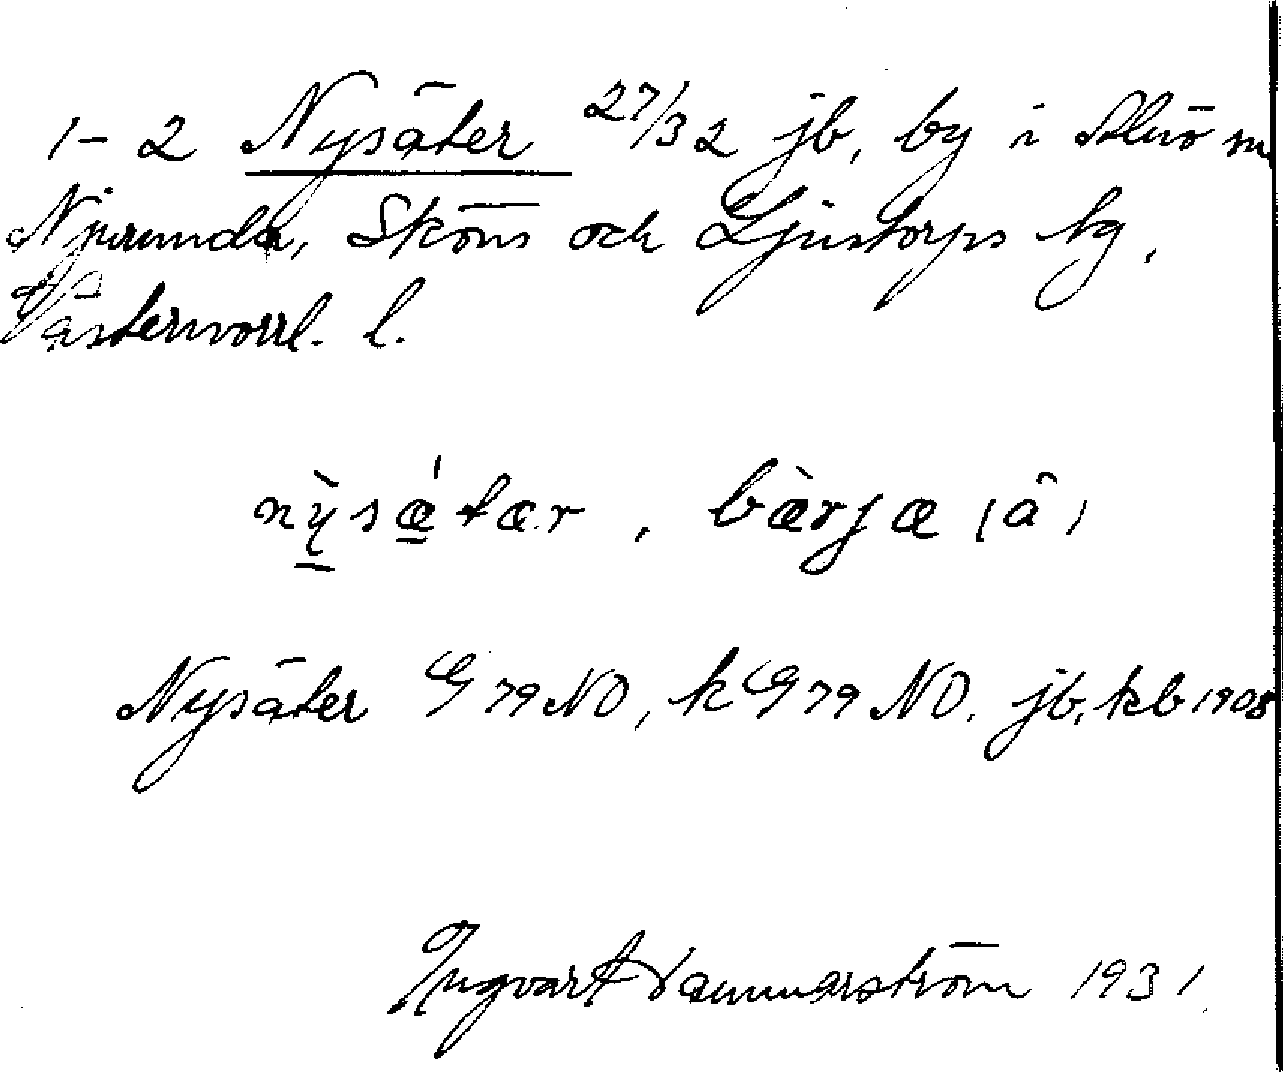 1-2 Nysäter 27/32 jb, by i Alnö
Njurunda, Sköns och Ljustorps tg,
Västernorrl. l.
nỳsǽtær, bærjæ (â)
Nysäter G 79 NO, k G 79 NO. jb, kb 1908
Ingvart Hammarström 1931